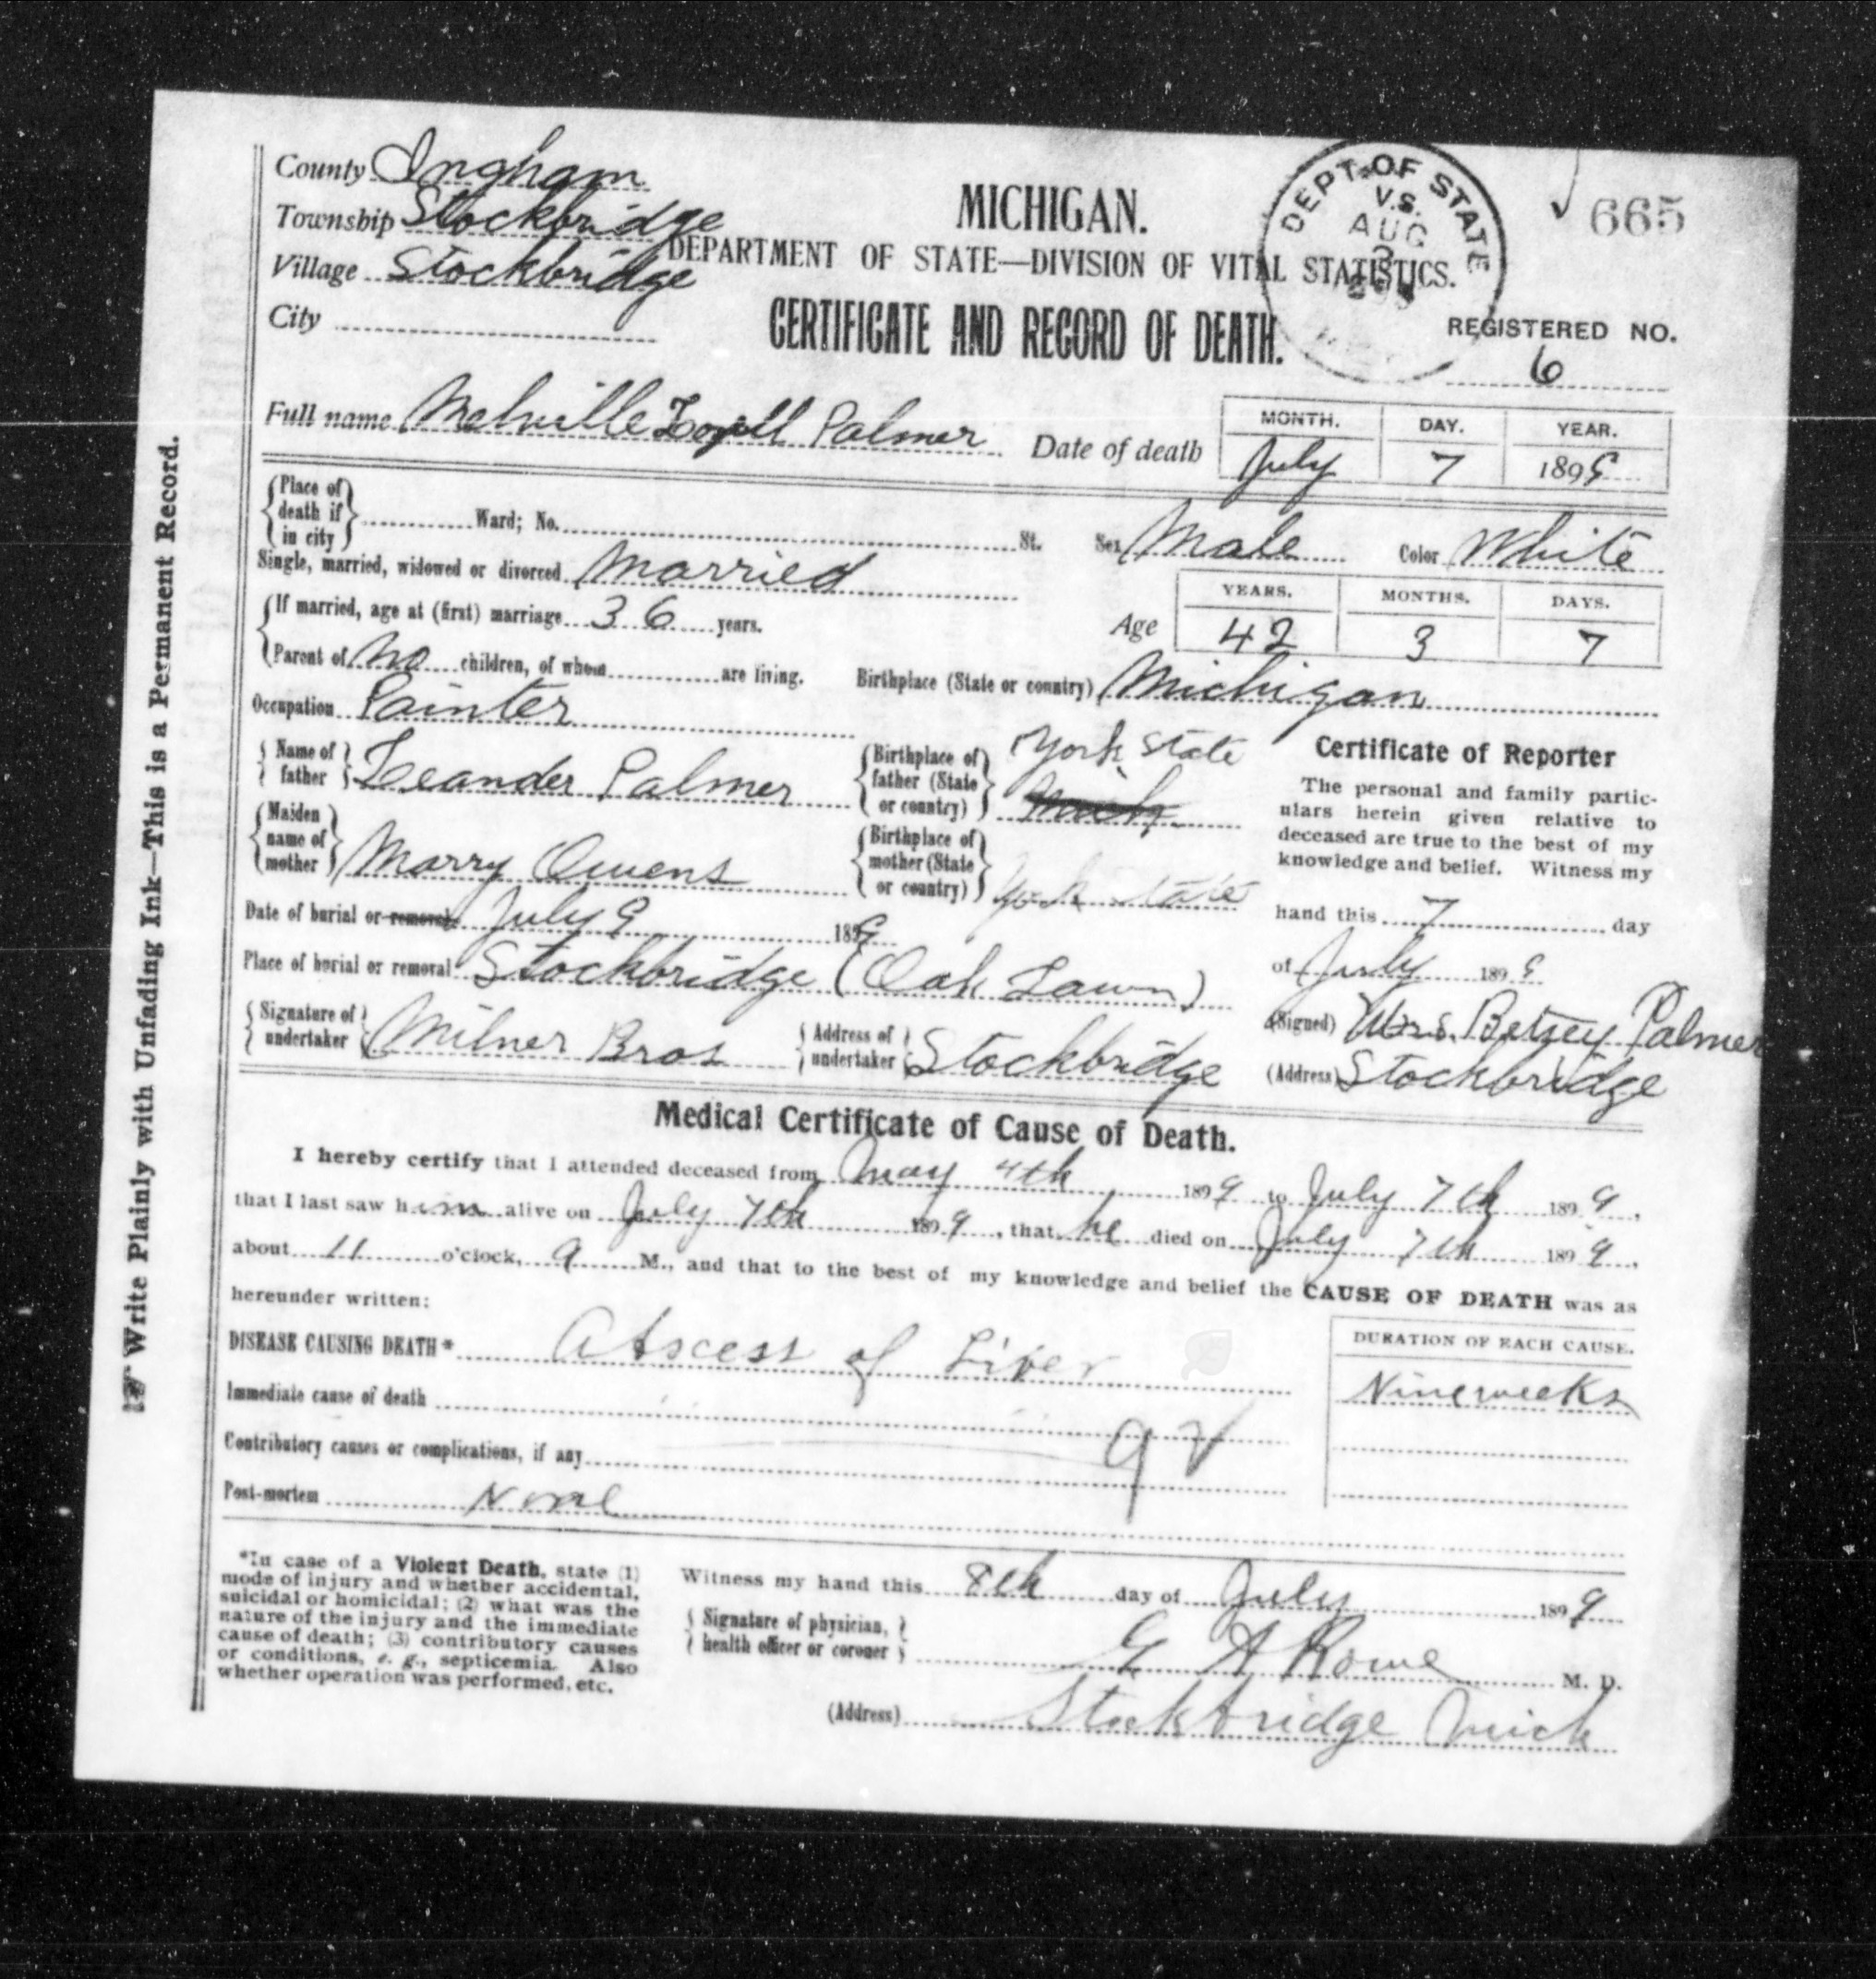 County Ingham
Township Stockbridge
Village Stockbridge
City
MICHIGAN.
DEPARTMENT OF STATE—DIVISION OF VITAL STATISTICS.
CERTIFICATE AND RECORD OF DEATH.
DEPT. OF STATE
V.S.
AUG
3
665
REGISTERED NO.
6
Full name Melville Palmer Date of death
MONTH. DAY. YEAR.
July 7 1899
Place of death if in city Ward; No. St. Sex Male Color White
Single, married, widowed or divorced Married
If married, age at (first) marriage 36 years.
Age
YEARS. MONTHS. DAYS.
42 3 7
Parent of No children, of whom are living. Birthplace (State or country) Michigan
Occupation Painter
Name of father Leander Palmer Birthplace of father (State or country) York State
Maiden name of mother Marry Owens Birthplace of mother (State or country) York State
Date of burial or removal July 9 1899
Place of burial or removal Stockbridge (Oak Lawn)
Signature of undertaker Milner Bros Address of undertaker Stockbridge
Certificate of Reporter
The personal and family partic-
ulars herein given relative to
deceased are true to the best of my
knowledge and belief. Witness my
hand this 7 day
of July 1899
(Signed) Mrs. Betzey Palmer
(Address) Stockbridge
Medical Certificate of Cause of Death.
I hereby certify that I attended deceased from May 4th 1899 to July 7th 1899,
that I last saw him alive on July 7th 1899, that he died on July 7th 1899,
about 11 o'clock, a M., and that to the best of my knowledge and belief the CAUSE OF DEATH was as
hereunder written:
DISEASE CAUSING DEATH* Abscess of Liver
Immediate cause of death
Contributory causes or complications, if any
Post-mortem None
DURATION OF EACH CAUSE.
Nine weeks
*In case of a Violent Death, state (1)
mode of injury and whether accidental,
suicidal or homicidal; (2) what was the
nature of the injury and the immediate
cause of death; (3) contributory causes
or conditions, e. g., septicemia. Also
whether operation was performed, etc.
Witness my hand this 8th day of July 1899
Signature of physician, health officer or coroner G A Rowe M. D.
(Address) Stockbridge Mich
Write Plainly with Unfading Ink—This is a Permanent Record.